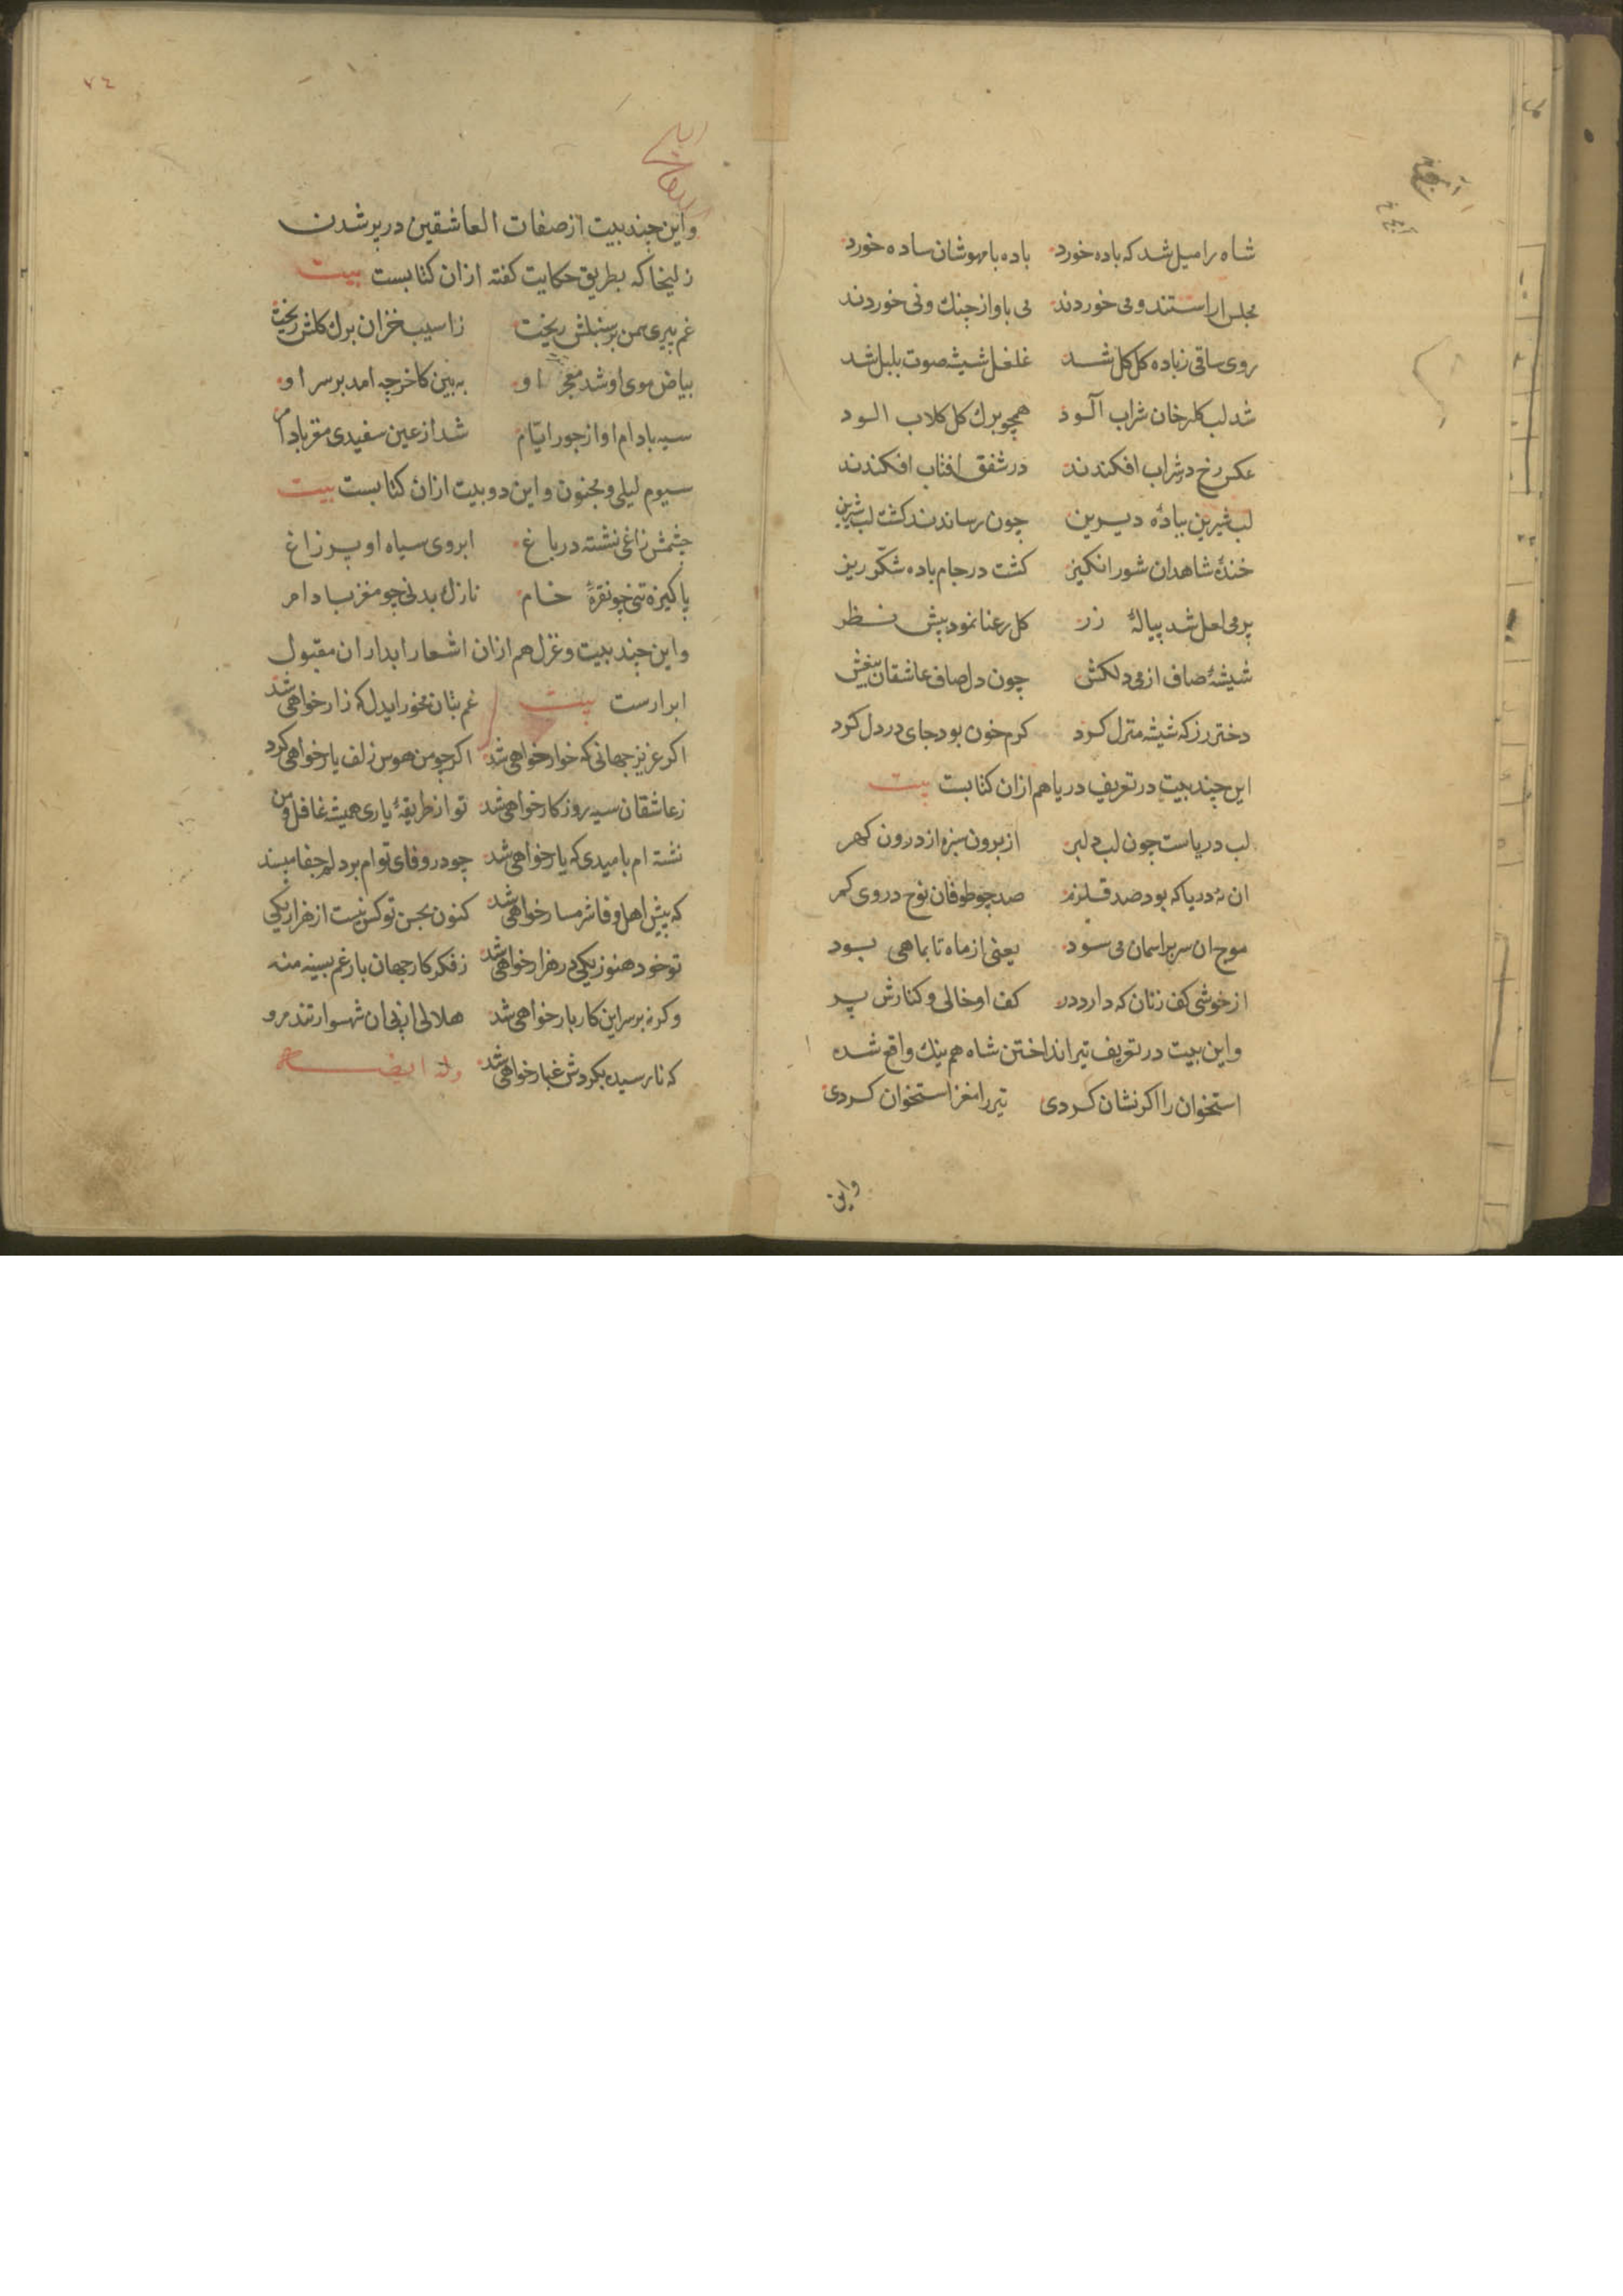 شاه را میل شد که باده خورد باده با مهوشان ساده خورد
مجلس اراستند و می خوردند می باواز چنك و نی خوردند
روی ساقی زباده کل کل شد غلغل شیشه صوت بلبل شد
شد لب کلرخان شراب آلود همچو برك کل کلاب الود
عکس رخ در شراب افکندند در شفق افتاب افکندند
لب شیرین بباده دیرین چون رساندند کشت لب شیرین
خندهٔ شاهدان شور انکیز کشت در جام باده شکّر ریز
پر می لعل شد پیالهٔ زر کل رعنا نمود پیش نظر
شیشهٔ صاف از می دلکش چون دل صاف عاشقان بیغش
دختر رز که شیشه منزل کرد کرم خون بود جای در دل کرد
این چند بیت در تعریف دریا هم ازان کتابست بیت
لب دریاست چون لب دلبر از برون سبزه از درون کهر
ان نه دریا که بود صد قلزم صد چو طوفان نوح در وی کم
موج ان سر بر اسمان می سود یعنی از ماه تا بماهی بود
از خوشی کف زنان که دارد در کف او خالی و کنارش پر
واین بیت در تعریف تیر انداختن شاه هم نیك واقع شده
استخوان را اکر نشان کردی تیر را مغز استخوان کردی
واین
٧٤
واین چند بیت از صفات العاشقین در پیر شدن
زلیخا که بطریق حکایت کفته ازان کتابست بیت
غم پیری سمن بر سنبلش ریخت زاسیب خزان برك کلش ریخت
بیاض موی او شد معجر او به بین کاخر چه امد بر سر او
سیه بادام او از جور ایّام شد از عین سفیدی مغز بادام
سیوم لیلی و مجنون و این دو بیت ازان کتابست بیت
چشمش زاغی نشسته در باغ ابروی سیاه او پر زاغ
پاکیزه تنی چو نقرهٔ خام نازك بدنی چو مغز بادام
واین چند بیت و غزل هم ازان اشعار ابداران مقبول
ابرارست بیت غم بتان مخور ایدل که زار خواهی شد
اکر عزیز جهانی که خوار خواهی شد اکر چو من هوس زلف یار خواهی کرد
زعاشقان سیه روزکار خواهی شد تو از طریقهٔ یاری همیشه غافل و من
نشسته ام بامیدی که یار خواهی شد چو در وفای توام بر دلم جفا مپسند
که پیش اهل وفا شرمسار خواهی شد کنون بحسن تو کس نیست از هزار یکی
تو خود هنوز یکی در هزار خواهی شد زفکر کار جهان بار غم بسینه منه
وکرنه بر سر این کار بار خواهی شد هلالی از پی ان شهسوار تند مرو
که نارسیده بکردش غبار خواهی شد وله ایضا